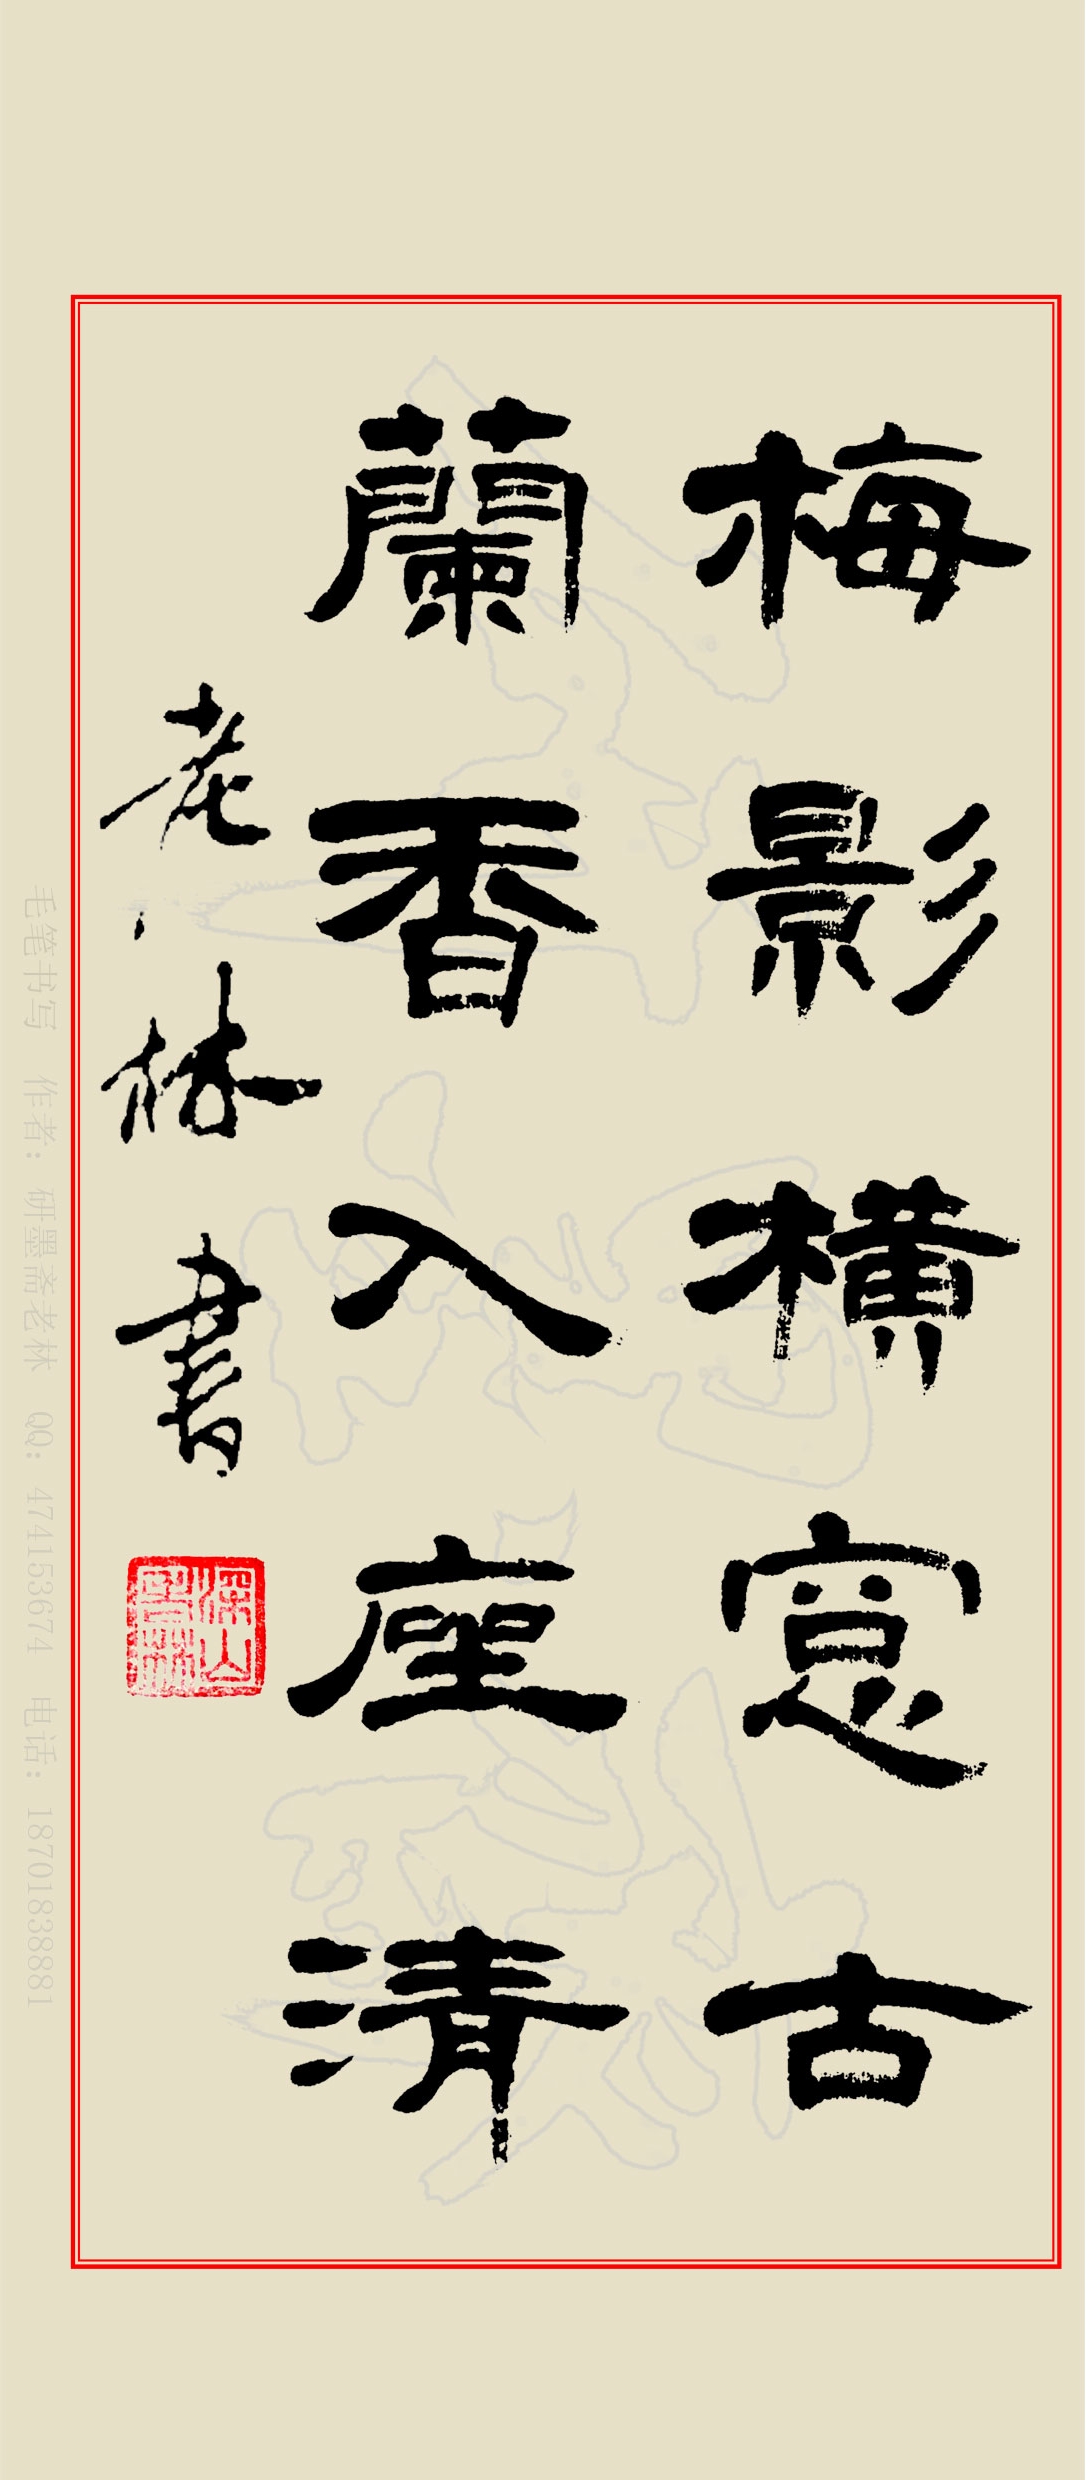 梅影横窓古
蘭香入座清
老林書
深山老林
毛笔书写 作者：研墨斋老林 QQ：474153674 电话：18701838881